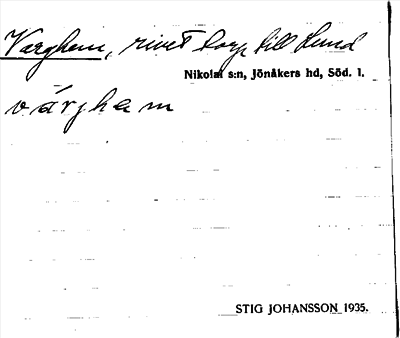 Varghem, rivet torp till Lund
Nikolai s:n, Jönåkers hd, Söd. l.
várgham
STIG JOHANSSON 1935.